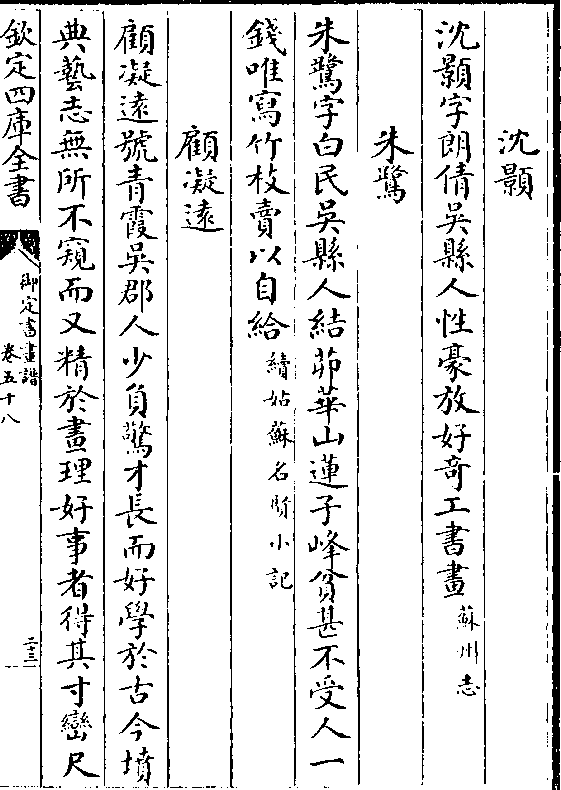 沈顥
沈顥字朗倩吳縣人性豪放好奇工書畫蘇州志
朱鷺
朱鷺字白民吳縣人結茆華山蓮子峰貧甚不受人一
錢唯寫竹枝賣以自給續姑蘇名賢小記
顧凝遠
顧凝遠號青霞吳郡人少負驚才長而好學於古今墳
典藝志無所不窺而又精於畫理好事者得其寸巒尺
欽定四庫全書
御定書畫譜
卷五十八
二十三